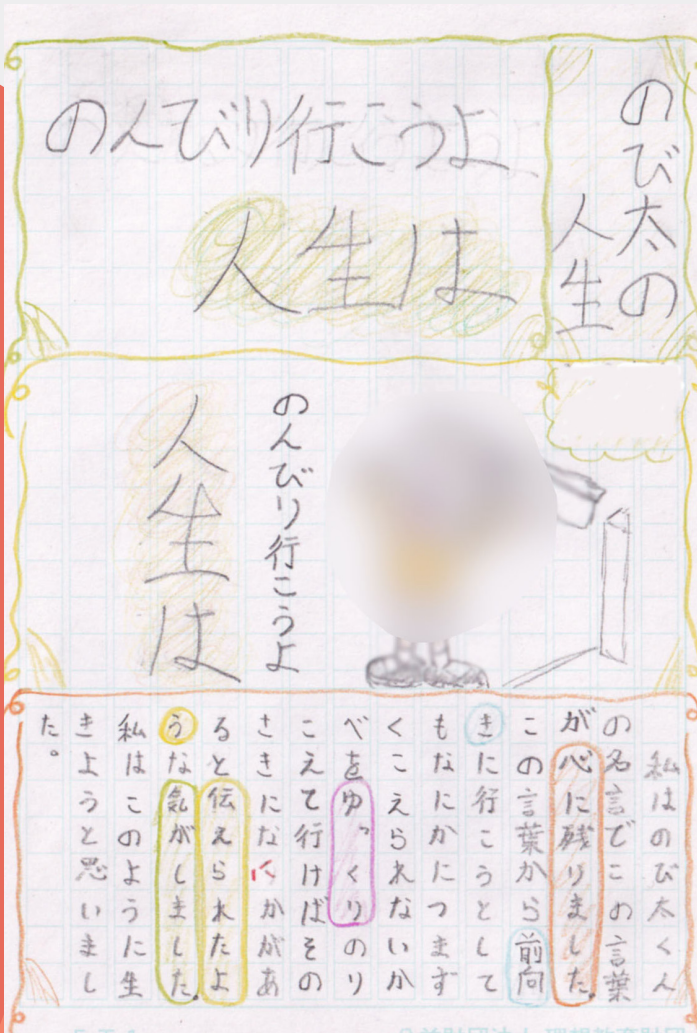 のび太の
人生
のんびり行こうよ
人生は
のんびり行こうよ
人生は
私はのび太くん
の名言でこの言葉
が心に残りました。
この言葉から前向
きに行こうとして
もなにかにつまず
くこえられないか
べをゆっくりのり
こえて行けばその
さきになにかがあ
ると伝えられたよ
うな気がしました。
私はこのように生
きようと思いまし
た。